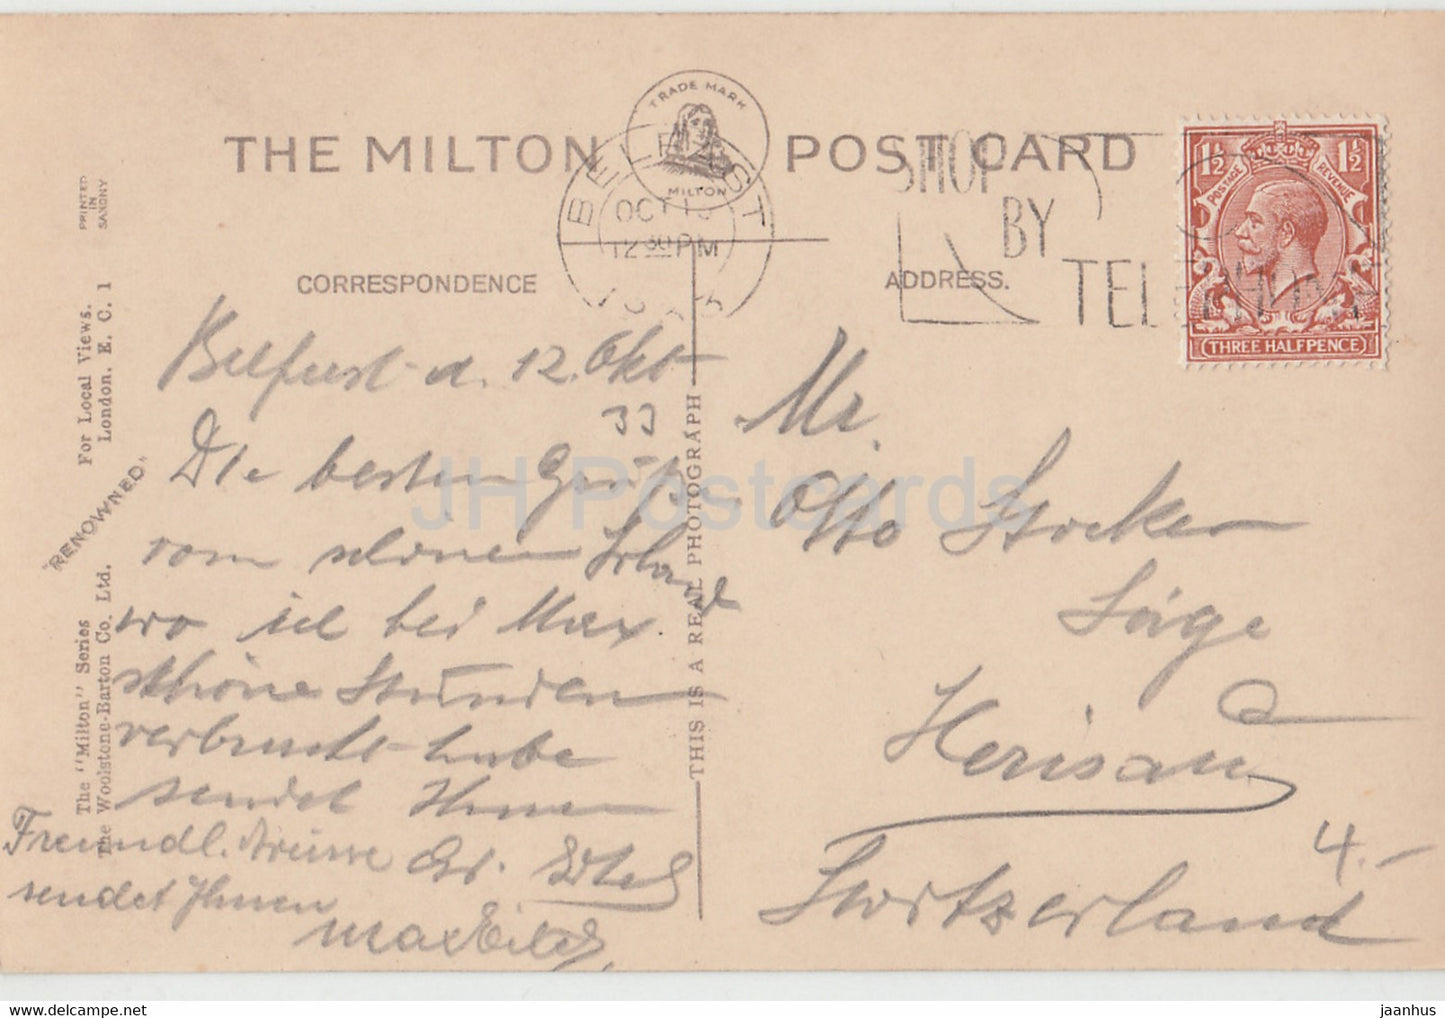 THE MILTON POST CARD
TRADE MARK
MILTON
BELFAST
OCT 13
12 30 PM
SHOP
BY
TELEPHONE
1½ 1½
POSTAGE REVENUE
THREE HALFPENCE
PRINTED
IN
SAXONY
CORRESPONDENCE
ADDRESS.
For Local Views.
London. E. C. 1
"RENOWNED"
The "Milton" Series
The Woolstone-Barton Co. Ltd.
THIS IS A REAL PHOTOGRAPH
Belfast d. 12. Okt
33
Die besten Grüße
vom schönen Irland
wo ich bei Max
schöne Stunden
verbracht habe
sendet Ihnen
Freundl. Grüsse
sendet Ihnen
Max
Mr.
Otto Stocker
Säge
Herisau
Switzerland
4.-
JH Postcards
jaanhus